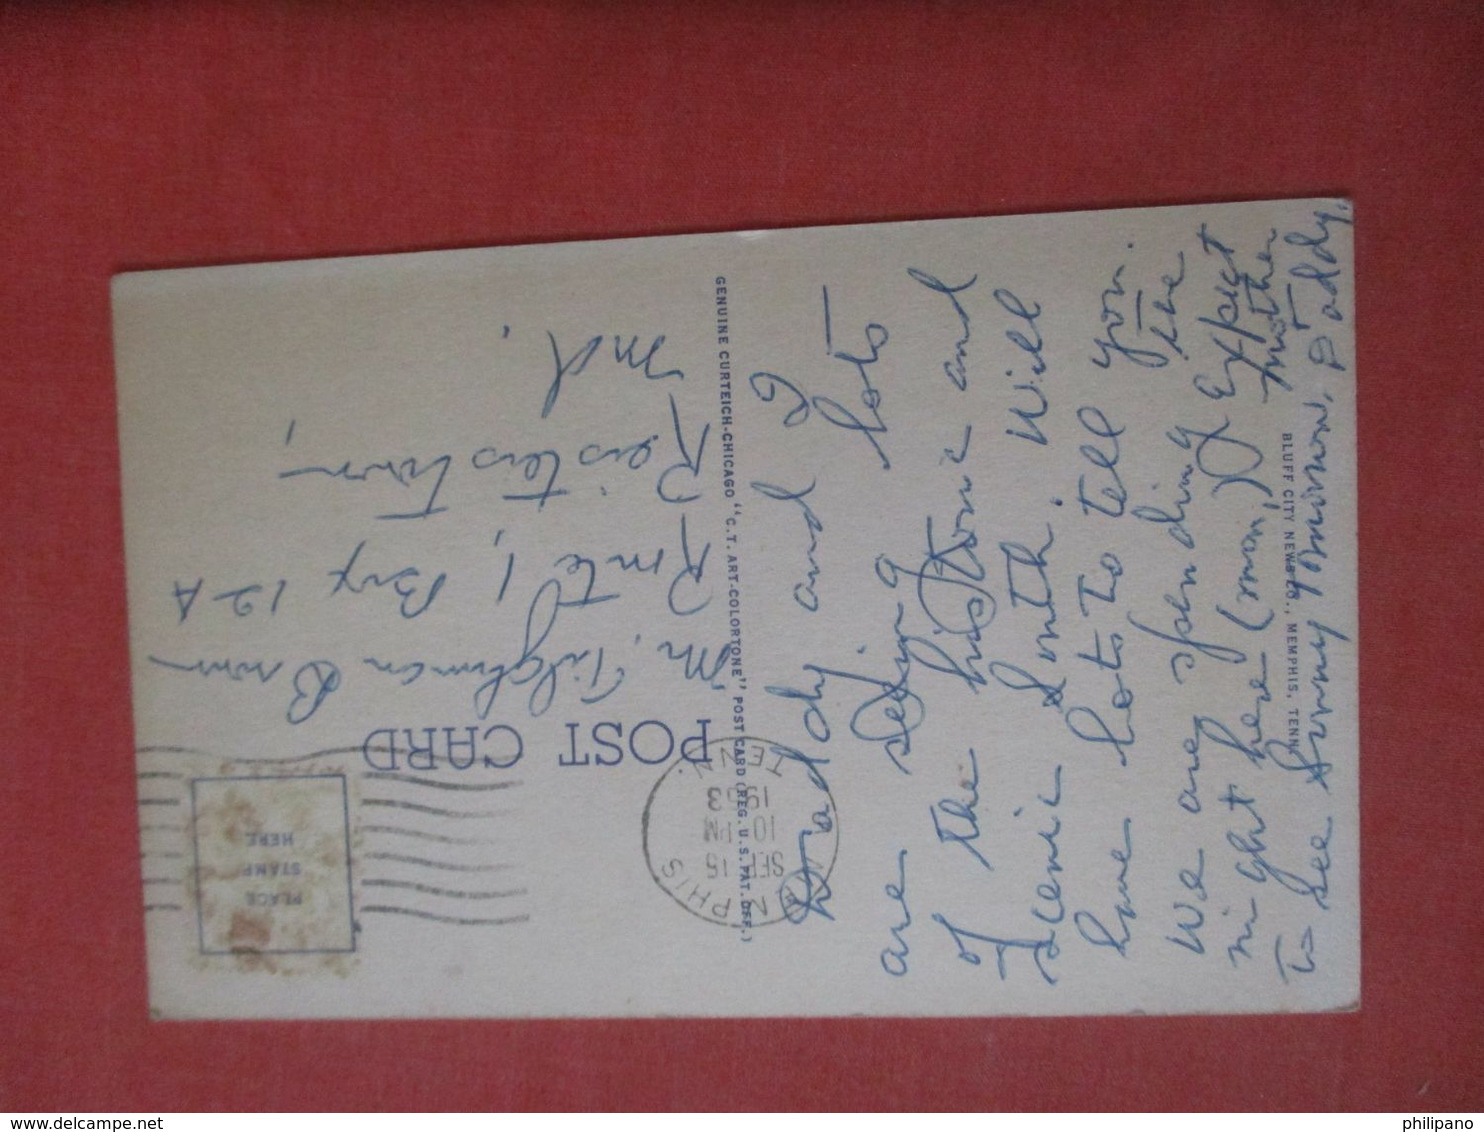 POST CARD
PLACE
STAMP
HERE
MPHIS
SEP 15
10 PM
1953
TENN.
Mr. Tilghman Brown
Route 1, Box 12 A
Reisterstown,
Md.
GENUINE CURTEICH-CHICAGO "C.T. ART-COLORTONE" POST CARD (REG. U.S. PAT. OFF.)
Daddy and I
are seeing lots
of the historic and
scenic South. Will
have lots to tell you.
We are spending the
night here (mon.) Expect
to see Sunny tomorrow. Mother
& Daddy.
BLUFF CITY NEWS CO., MEMPHIS, TENN.
philipano